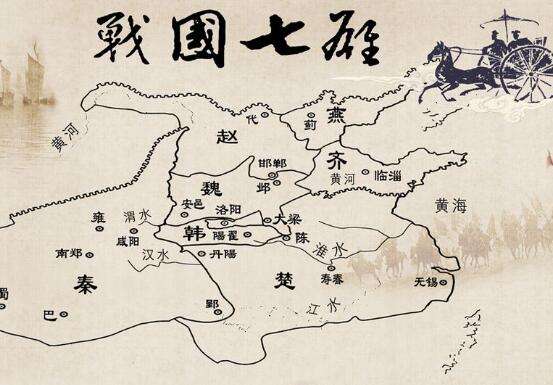 戰國七雄
黄河
代
蓟
燕
赵
邯郸
邺
齐
黄河
临淄
魏
安邑
洛阳
大梁
黄海
雍
渭水
咸阳
韩
陽翟
陈
南郑
汉水
丹陽
淮水
秦
楚
寿春
无锡
蜀
巴
郢
江水